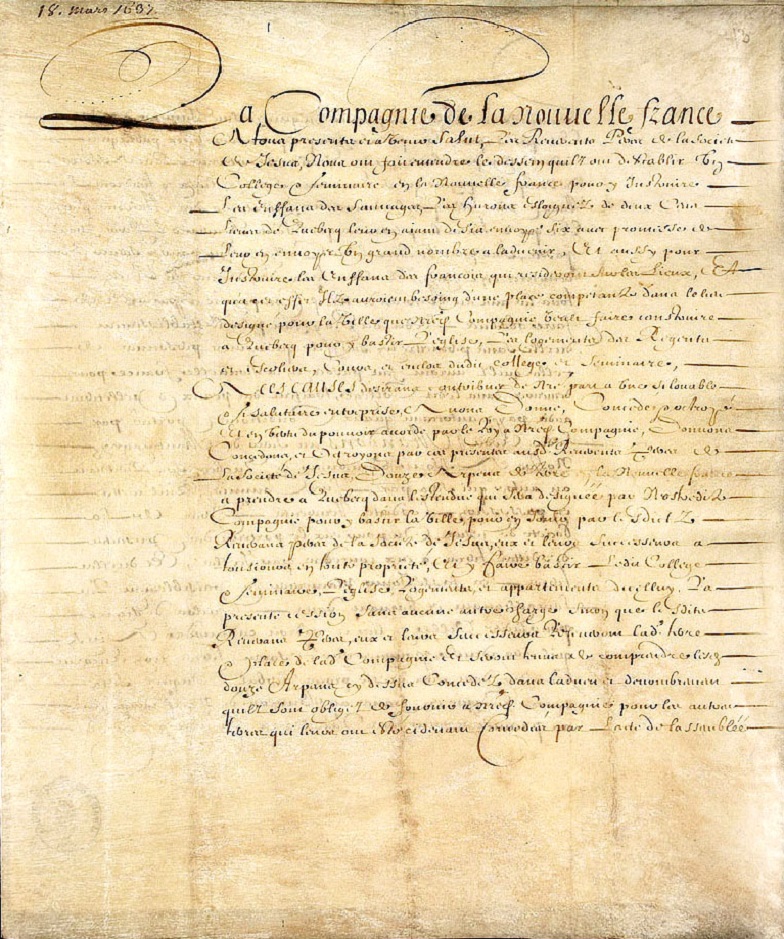 18. Mars 1637.
La Compagnie de la Nouuelle france
A tous presents et a venir Salut, Les Reuerends Peres de la Societé
de Jesus, Nous ont fait entendre le dessein quilz ont de establir Vn
College & seminaire en la Nouuelle france pour y Instruire
Les Enffans des Sauuages Les hurons eslongnez de deux Cens
Lieues de Quebecq leur en aians desia enuoyé six auec promesse de
leur en enuoyer Vn grand nombre a laduenir, Et aussy pour
Instruire les Enffans des francois qui resideront sur les Lieux, Et
qua cet effet Ilz auroient besoing dune place competante dans le lieu
designé pour la Ville que Compagnie veult faire construire
a Quebecq pour y bastir Leglise, Les logements des Regents
Escoliers, Cours, et enclos dudit College et Seminaire,
A CES CAUSES desirans contribuer de nre part a vne si louable
& si salutaire entreprise, Auons Donné, Concedé & octroyé
Et en vertu du pouuoir accordé par le Roy a Compagnie, Donnons
Concedons, et Octroyons par ces presentes Reuerends Peres de
la Societé de Jesus, Douze Arpens de terre en la Nouuelle france
a prendre a Quebecq dans lestendue qui sera designée par
Compagnie pour y bastir la Ville, pour en Jouir par lesdictz
Reuerans peres de la Societé de Jesus, eux et leurs Successeurs a
tousiours en toute proprieté, Et y faire bastir Ledit College
& Seminaire, Leglise, Logements, et appartements dicelluy, La
presente cession sans aucune autre charge sinon que lesdits
Reuerans Peres, eux et leurs Successeurs lad. terre
& place de lad. Compagnie Et seront tenus de comprendre lesd.
douze Arpens cy dessus Concedez dans ladueu et denombrement
quilz sont obligez de fournir a Compagnie pour les autres
terres qui leurs ont esté cideuant Concedées par Lacte de lassemblée